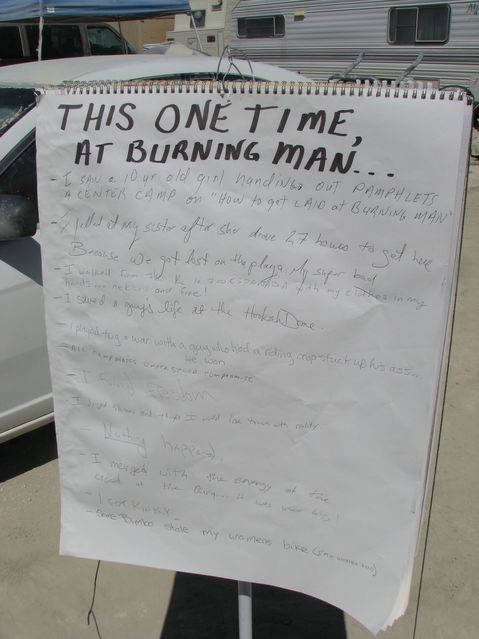 THIS ONE TIME,
AT BURNING MAN...
- I SAW A 10 yr old girl handing OUT PAMPHLETS
A CENTER CAMP on "How to get LAID at BURNING MAN"
- I yelled at my sister after she drove 27 hours to get here
Because we got lost on the playa. My super bad
- I walked from the K to with my clothes in my
hands and free!
- I saved a guy's life at the Hookah Dome.
- I played tug o war with a guy who had a riding crop stuck up his ass...
He won
- All campmates
- I found freedom
- I and I would lose touch with reality
- Nothing happened.
- I merged with the energy of the
crowd at the Burn... it was
- I GOT KINKY -
- Some Bimbo stole my womens bike